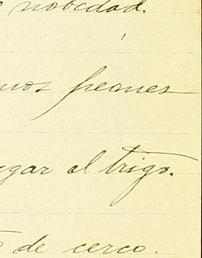 novedad.
nos peones
gar al trigo.
de cerco.